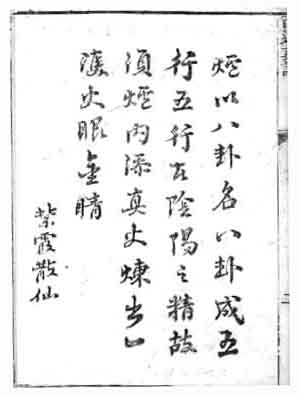 爐以八卦名八卦成五
行五行陰陽之精故
須爐內添真火煉出一
雙火眼金睛
紫霞散仙